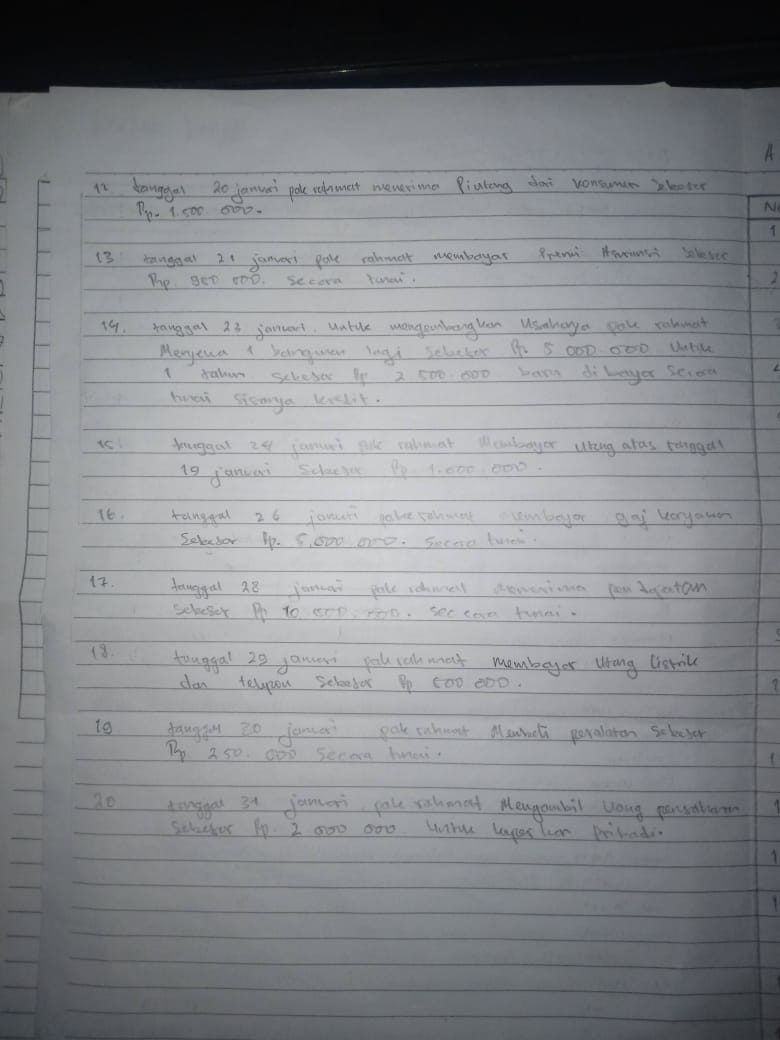 12 tanggal 20 januari pak rahmat menerima Piutang dari konsumen sebesar
Rp. 1.500 000.
13 tanggal 21 januari pak rahmat membayar Premi Asuransi sebesar
Rp secara tunai.
14. tanggal 23 januari. Untuk mengembangkan Usahanya pak rahmat
Menyewa 1 bangunan lagi sebesar Rp. 5 000.000 Untuk
1 tahun sebesar Rp 2 500.000 baru di bayar secara
tunai sisanya kredit.
15. tanggal 24 januari pak rahmat Membayar Utang atas tanggal
19 januari sebesar Rp 1.000.000.
16. tanggal 26 januari pak rahmat membayar gaji karyawan
sebesar Rp. 5.000 000. Secara tunai.
17. tanggal 28 januari pak rahmat Menerima
sebesar Rp 10 000.000. secara tunai.
18. tanggal 29 januari pak rahmat membayar Utang Listrik
dan telepon sebesar Rp 000.
19 tanggal 30 januari pak rahmat Membeli peralatan sebesar
Rp. 250.000 secara tunai.
20 tanggal 31 januari pak rahmat Mengambil Uang
sebesar Rp. 2 000 000 Untuk pribadi.
A
1